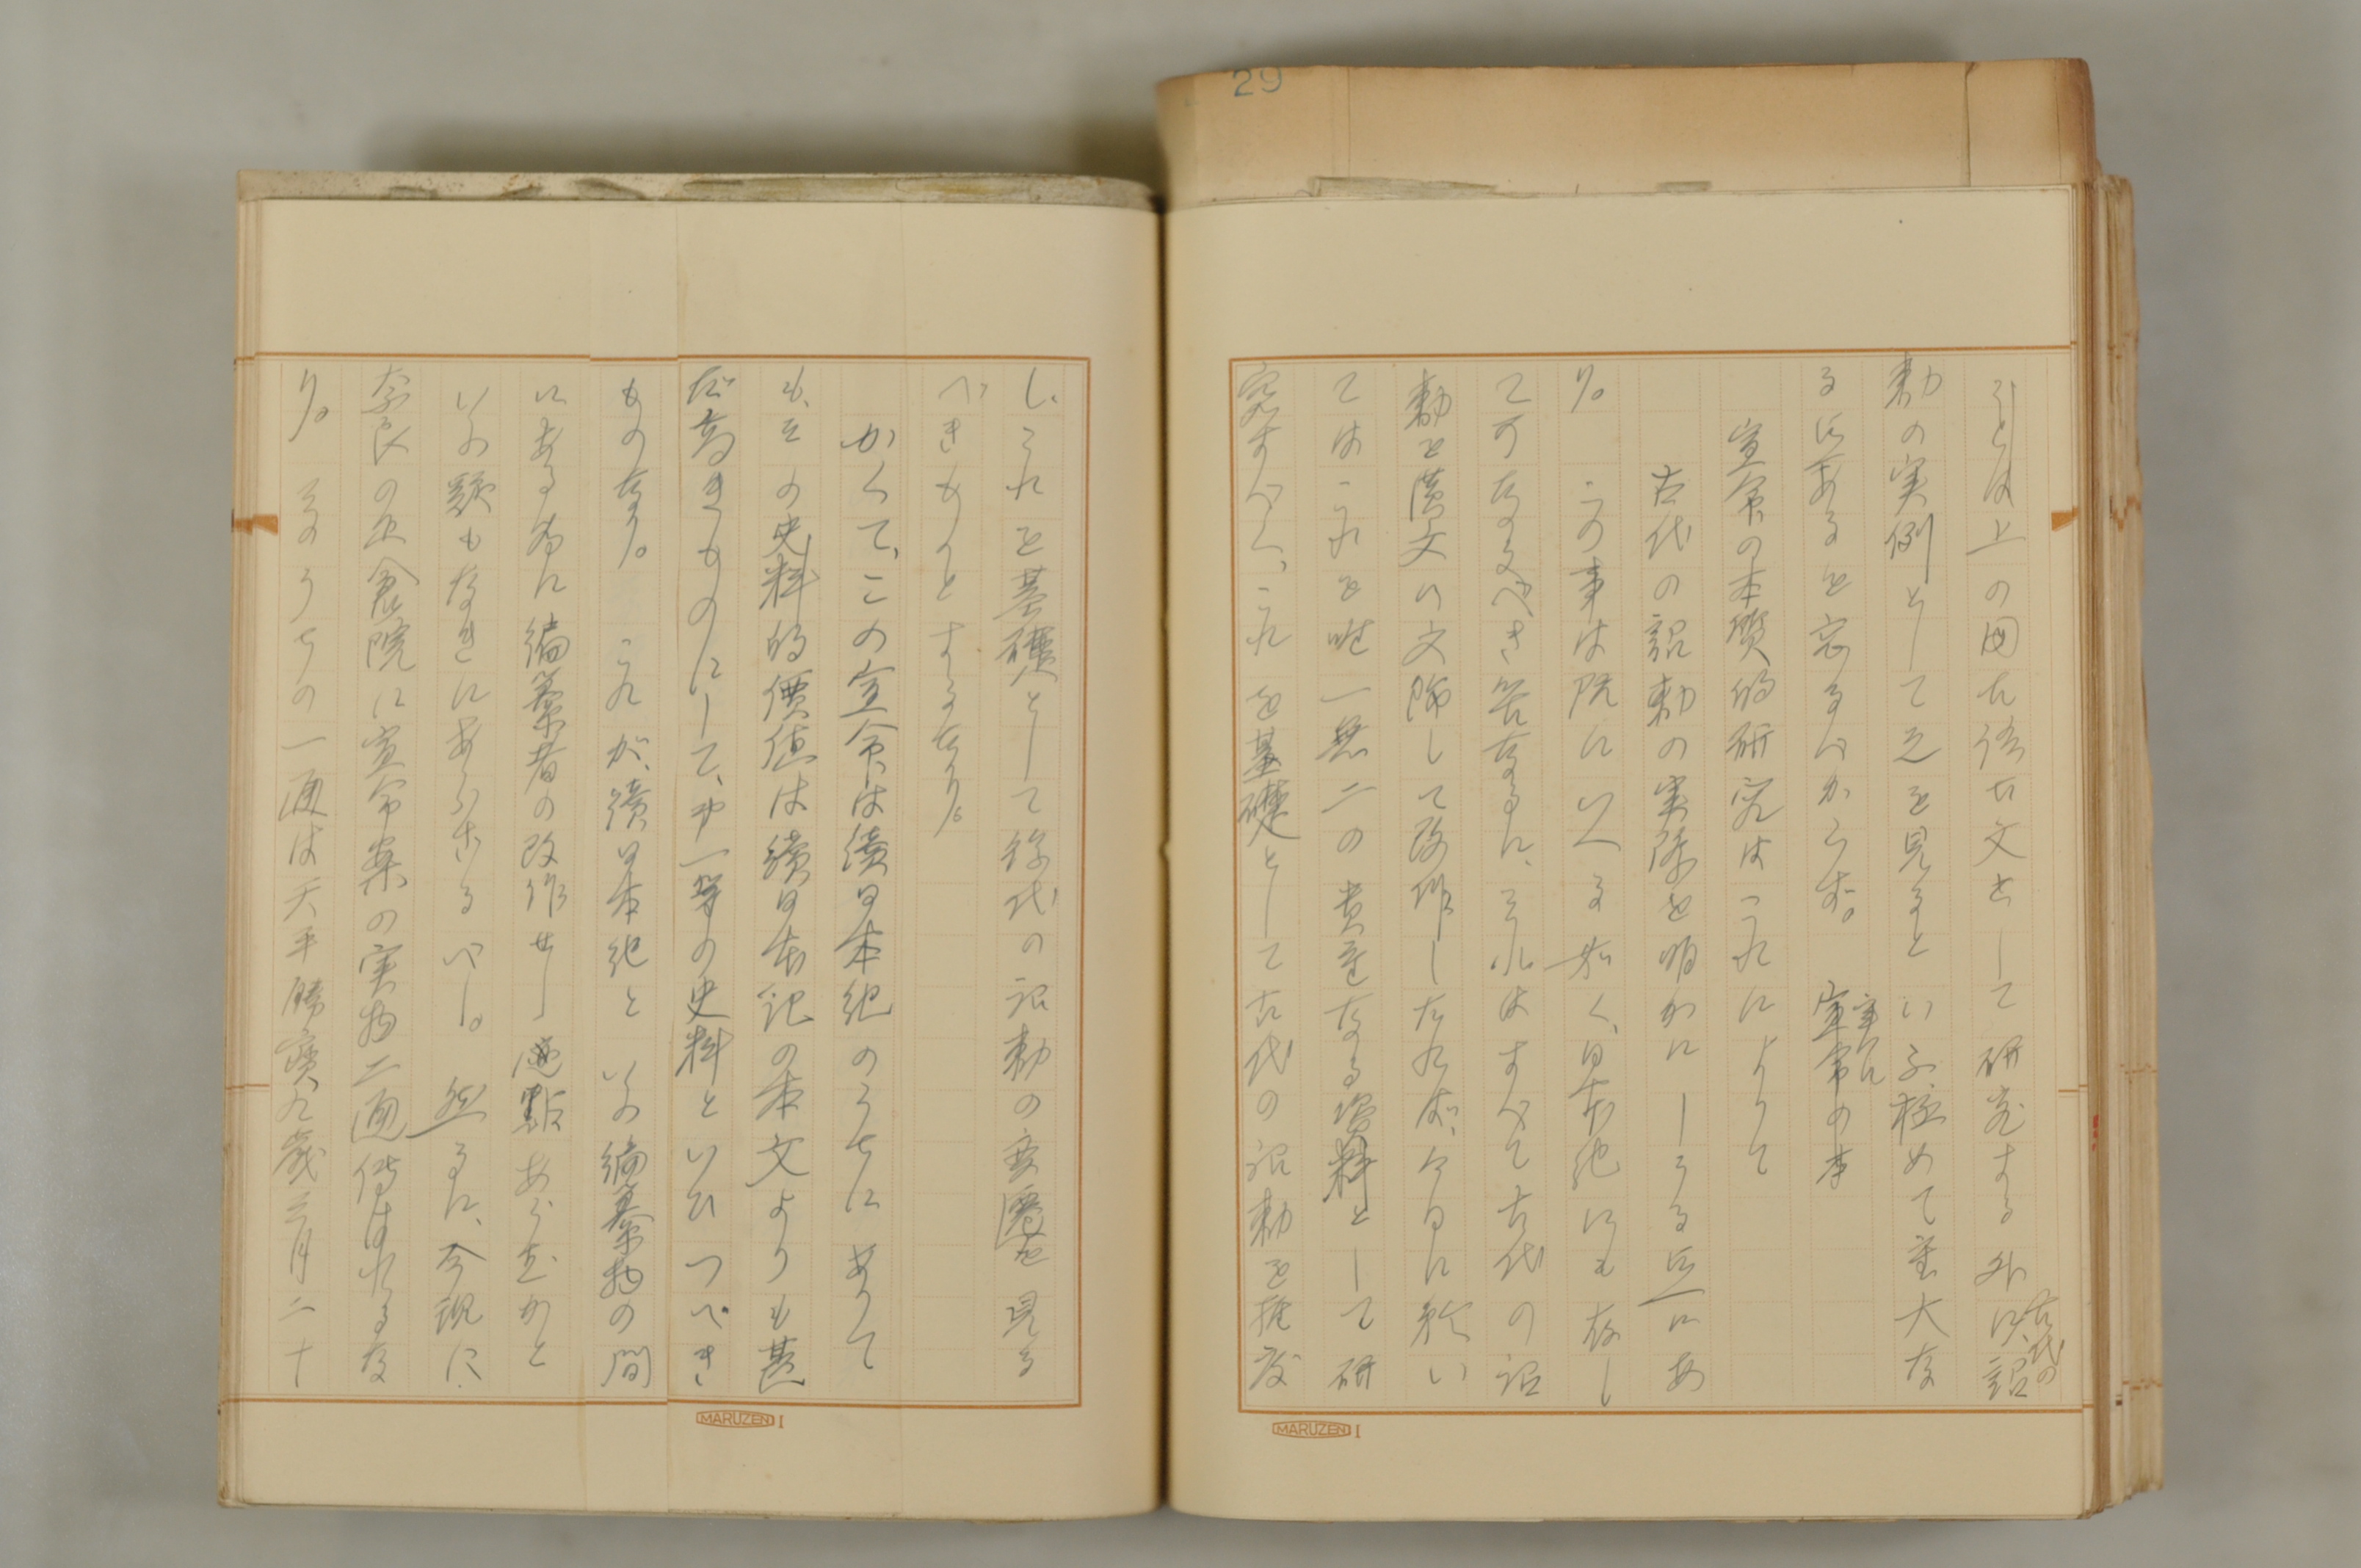 29
勅の実例として之を見るといふ極めて重大な
る点あるを忘るべからず。 宣命の本
宣命の本質的研究はこれによりて
古代の詔勅の実際を明かにしうる点にあ
り。 この事は既にいへる如く、日本紀にも存し
て可なるべき筈なるに、それはすべて古代の詔
勅を漢文に文飾して改作したれば、今日に於い
てはこれを唯一無二の貴重なる資料として研
究すべく、これを基礎として古代の詔勅を推度
し、これを基礎として後代の詔勅の変遷を見る
べきものとするなり。
かくて、この宣命は續日本紀のうちにありて
も、その史料的價値は續日本記の本文よりも甚
だ高きものにして、第一等の史料といひつべき
ものなり。 これが、續日本紀といふ編纂物の間
にある為に編纂者の改作せし 點あらずかと
いふ類もなきにあらざるべし。 然るに、今現に
奈良の正倉院に宣命案の実物二通傳はれるな
り。 そのうちの一通は天平勝寳九歳三月二十
MARUZEN I
MARUZEN I